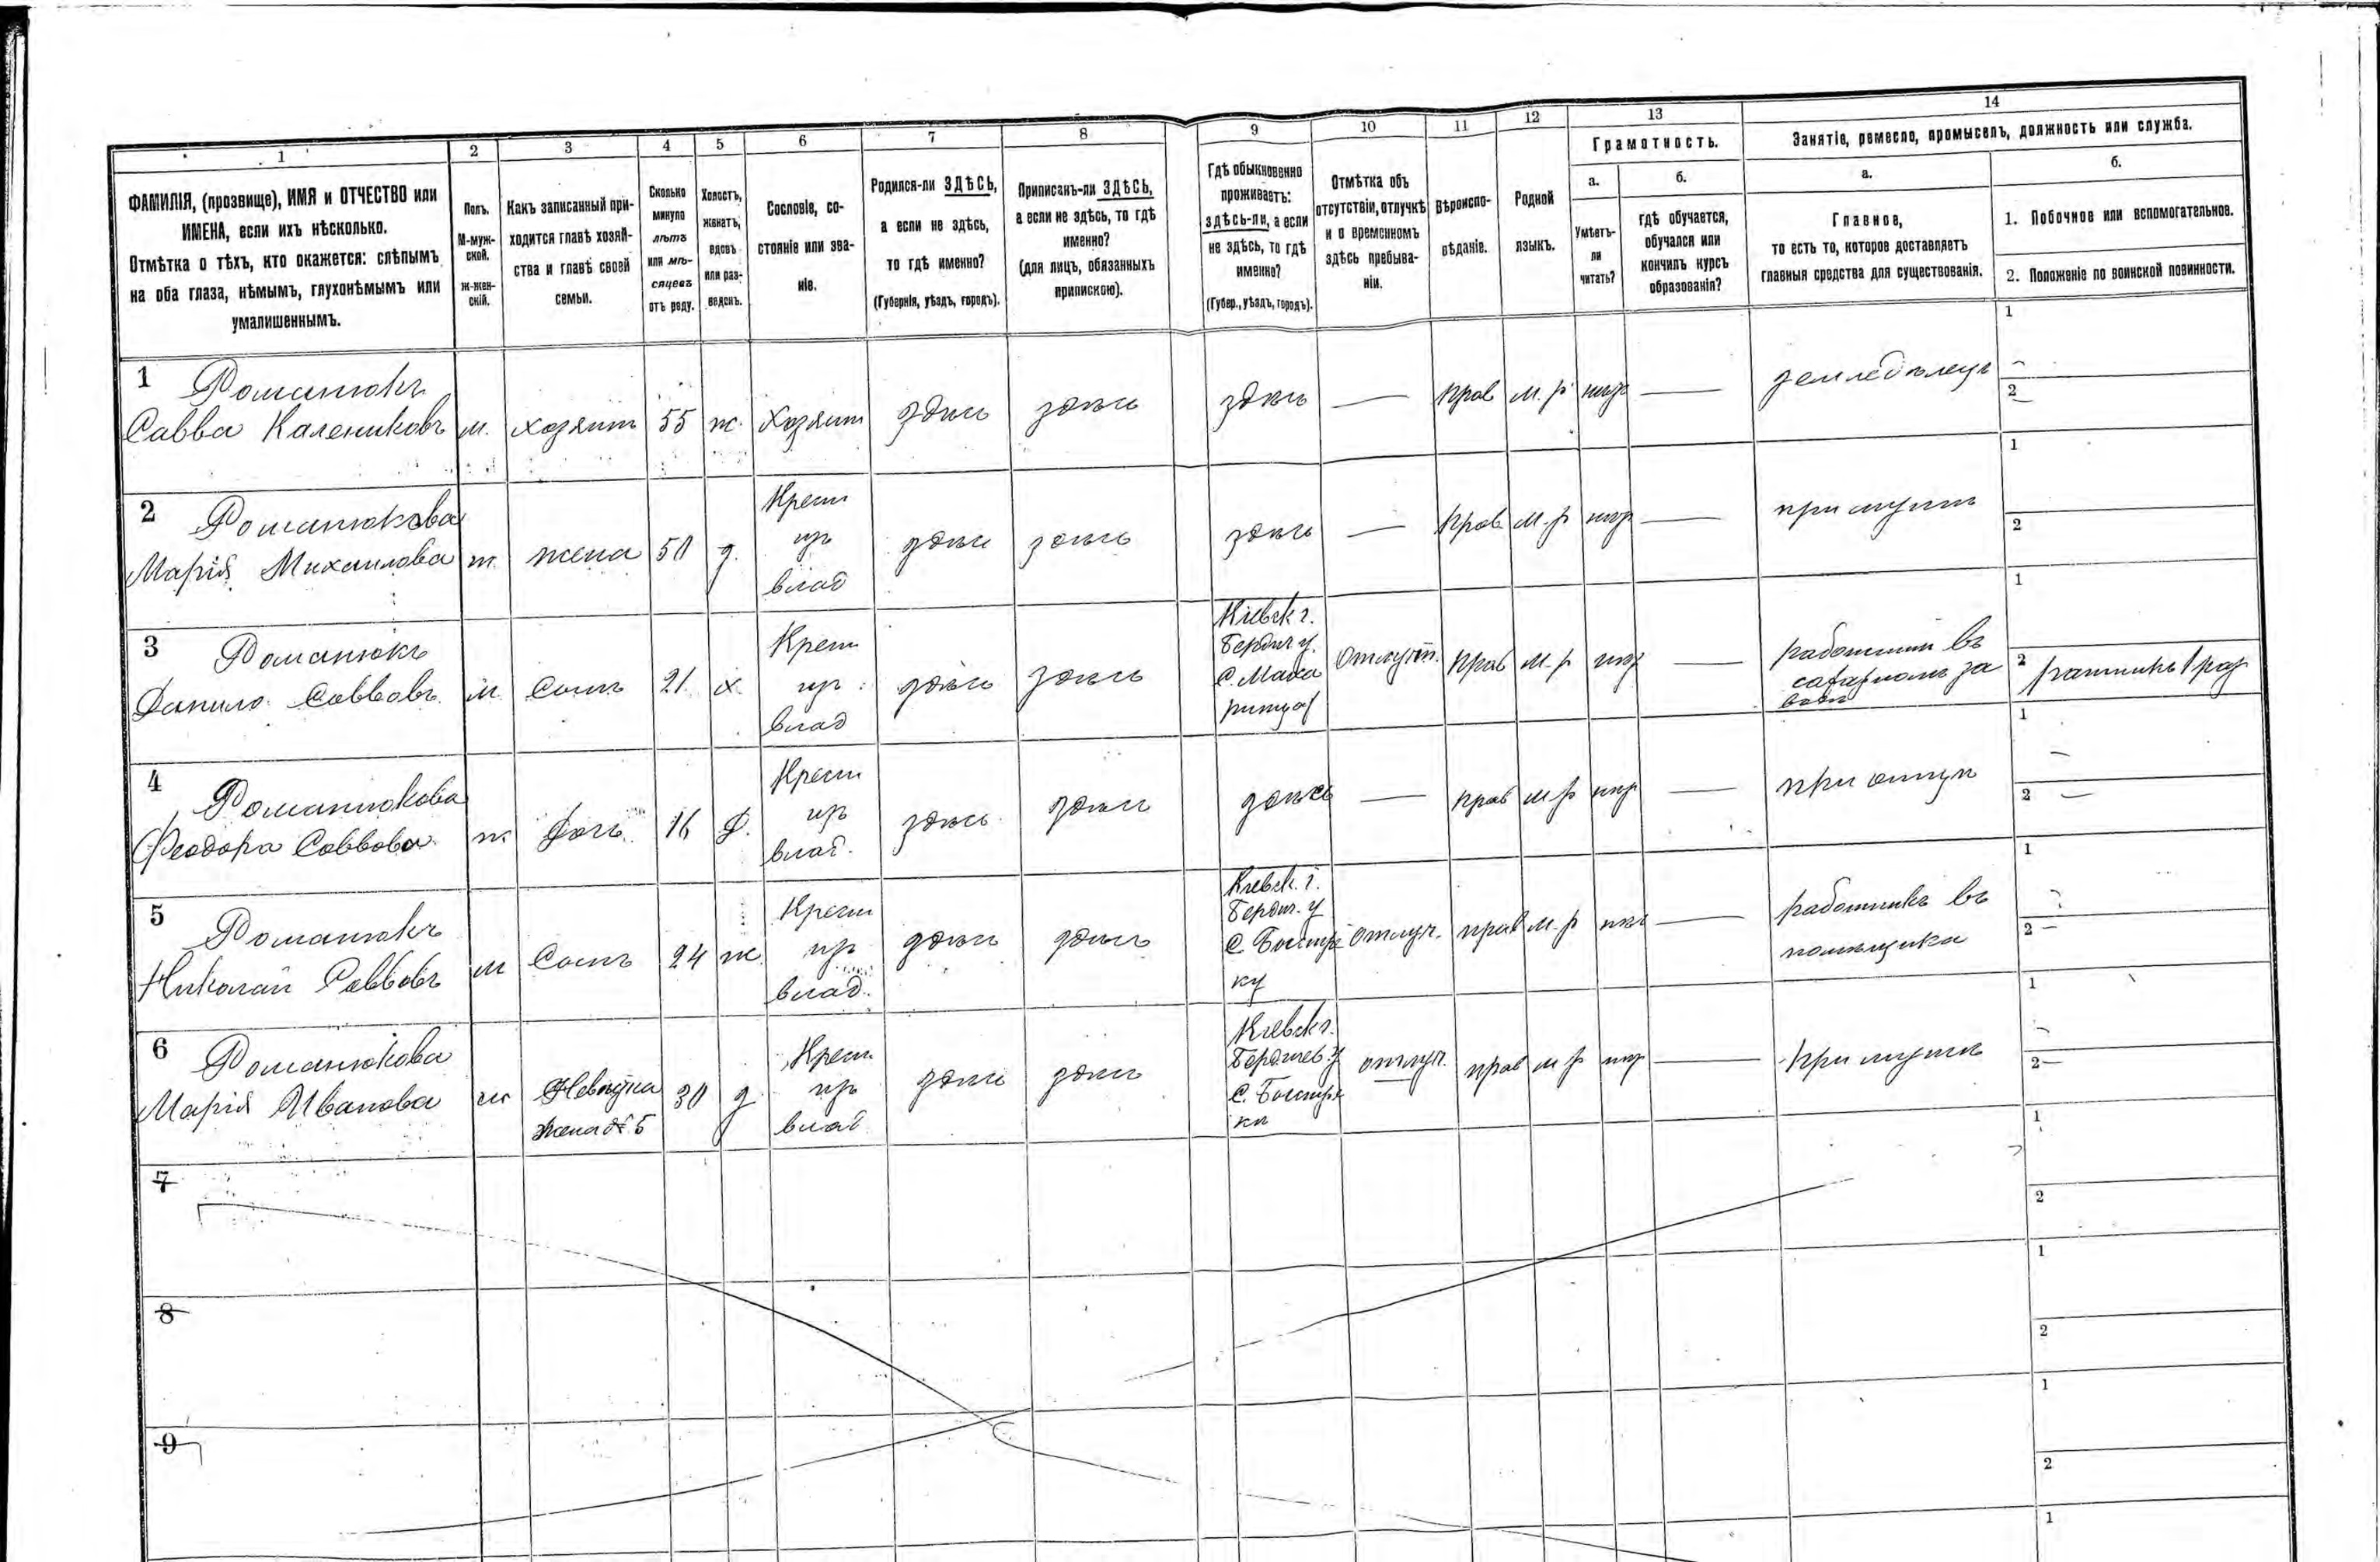 1
2
3
4
5
6
7
8
9
10
11
12
13
14
ФАМИЛІЯ, (прозвище), ИМЯ и ОТЧЕСТВО или
ИМЕНА, если ихъ нѣсколько.
Отмѣтка о тѣхъ, кто окажется: слѣпымъ
на оба глаза, нѣмымъ, глухонѣмымъ или
умалишеннымъ.
Полъ.
М-муж-
ской.
Ж-жен-
скій.
Какъ записанный при-
ходится главѣ хозяй-
ства и главѣ своей
семьи.
Сколько
минуло
лѣтъ
или мѣ-
сяцевъ
отъ роду.
Холостъ,
женатъ,
вдовъ
или раз-
веденъ.
Сословіе, со-
стояніе или зва-
ніе.
Родился-ли ЗДѢСЬ,
а если не здѣсь,
то гдѣ именно?
(Губернія, уѣздъ, городъ).
Приписанъ-ли ЗДѢСЬ,
а если не здѣсь, то гдѣ
именно?
(для лицъ, обязанныхъ
припискою).
Гдѣ обыкновенно
проживаетъ:
здѣсь-ли, а если
не здѣсь, то гдѣ
именно?
(Губер., уѣздъ, городъ).
Отмѣтка объ
отсутствіи, отлучкѣ
и о временномъ
здѣсь пребыва-
ніи.
Вѣроиспо-
вѣданіе.
Родной
языкъ.
Грамотность.
а.
Умѣетъ-
ли
читать?
б.
гдѣ обучается,
обучался или
кончилъ курсъ
образованія?
Занятіе, ремесло, промыселъ, должность или служба.
а.
Главное,
то есть то, которое доставляетъ
главныя средства для существованія.
б.
1. Побочное или вспомогательное.
2. Положеніе по воинской повинности.
1 Романюкъ
Савва Калениковъ м. хозяинъ 55 ж. Хозяинъ здѣсь здѣсь здѣсь — прав м. р нѣтъ — земледѣлецъ
1 —
2 —
2 Романюкова
Марія Михаилова ж. жена 50 з. Крест
из
влад здѣсь здѣсь здѣсь — прав м. р нѣтъ — при мужѣ
1
2
3 Романюкъ
Данило Саввовъ м сынъ 21 х Крест
из
влад здѣсь здѣсь Кіевск г.
Бердич у.
С. Мака
Отлуч. прав м. р нѣтъ — работникъ въ
сахарномъ за
водѣ
1
2 ратникъ 1 раз
4 Романюкова
Феодора Саввова ж дочь 16 д. Крест
из
влад. здѣсь здѣсь здѣсь — прав м р нѣтъ — при отцѣ
1 —
2 —
5 Романюкъ
Николай Саввовъ м сынъ 24 ж. Крест
из
влад. здѣсь здѣсь Кіевск. г.
Бердич. у
С. Быстри
ку
отлуч. прав м. р нѣтъ — работникъ въ
помѣщика
1
2 —
6 Романюкова
Марія Иванова ж Невѣстка
жена № 5 30 з Крест
из
влад здѣсь здѣсь Кіевск г.
Бердичев. у
С. Быстри
ки
отлуч. прав м р нѣтъ — при мужѣ
1 —
2 —
7
1
2
8
1
2
9
1
2
1